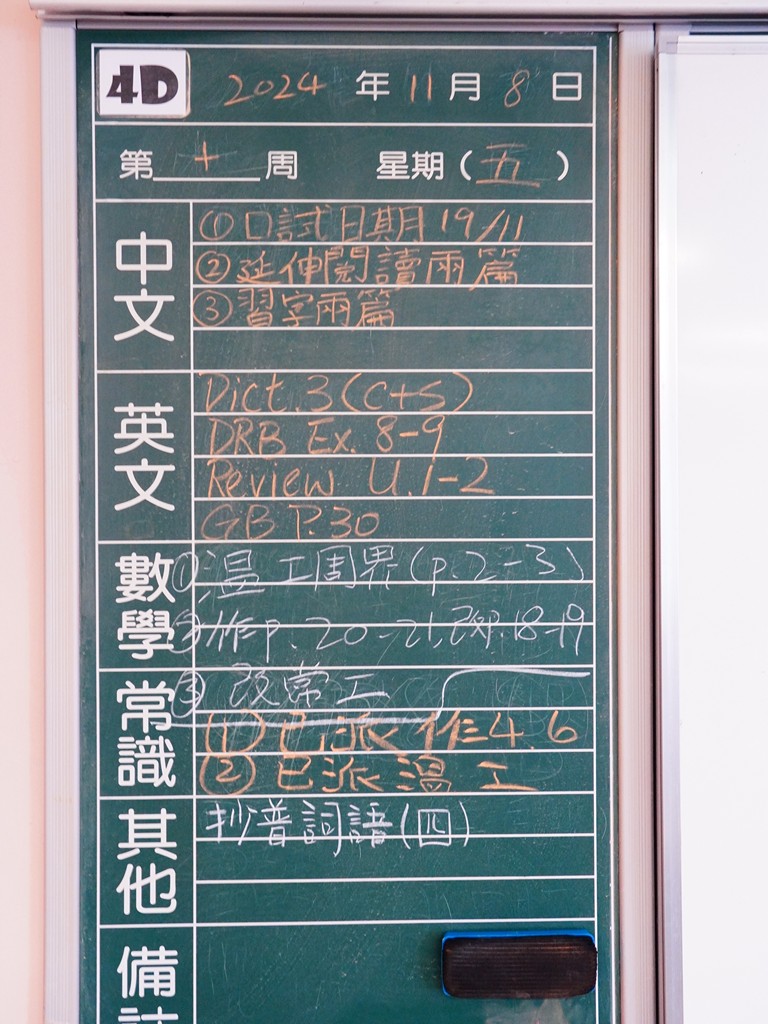 4D 2024 年 11 月 8 日
第 十 周 星期（五）
中文
①口試日期 19/11
②延伸閱讀兩篇
③習字兩篇
英文
Dict. 3 (C+S)
DRB Ex. 8-9
Review U.1-2
GB P.30
數學
①溫工周界(p.2-3)
②作p.20-21, 18-19
③改常工
常識
(1)已派作4.6
(2)已派溫工
其他
抄普詞語(四)
備